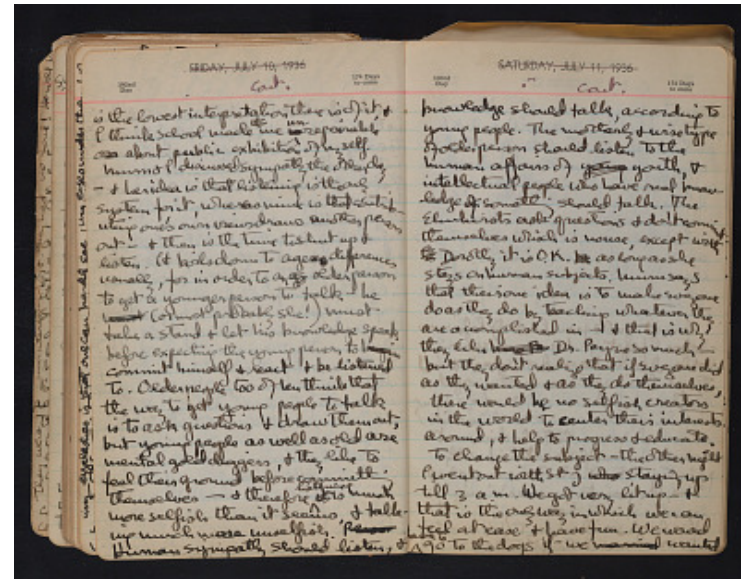 FRIDAY, JULY 10, 1936
Cont.
is the lowest interpretation there is of it &
I think school made me
about public exhibition of myself
Mumsi & I discussed sympathy the other day
– & her idea is that listening is the only
system for it, whereas mine is that
one's own views draws another person
out – & then is the time to shut up &
listen. It boils down to age differences
usually, for in order to an older person
to get a younger person to talk – he
(or most probably she!) must
take a stand & let his knowledge speak
before expecting the young person to
commit himself & react & be listened
to. Older people too often think that
the way to get young people to talk
is to ask questions & draw them out,
but young people as well as old are
mental gold diggers, & they like to
feel their ground before committing
themselves – & therefore is much
more selfish than it seems, & talk-
ing much more unselfish.
Human sympathy should listen, &
SATURDAY, JULY 11, 1936
cont.
knowledge should talk, according to
young people. The motherly & wise type
of older person should listen to the
human affairs of youth, &
intellectual people who have real know-
ledge of something should talk. The
ask questions & don't commit
themselves which is worse, except with
Dorothy it is O.K. as long as she
stays on human subjects. Mumsi says
that their one idea is to make everyone
do as they do by teaching whatever they
are accomplished in – & that is why
they like Dr. Payne so much –
but they don't realize that if everyone did
as they wanted & as they do themselves,
there would be no selfish creators
in the world to center their interests
around, & help to progress & educate.
To change the subject – the other night
I went out with St. J staying up
till 3 a.m. We got very lit up – &
that is the only way in which we can
feel at ease & have fun. We would
go to the dogs if we wanted